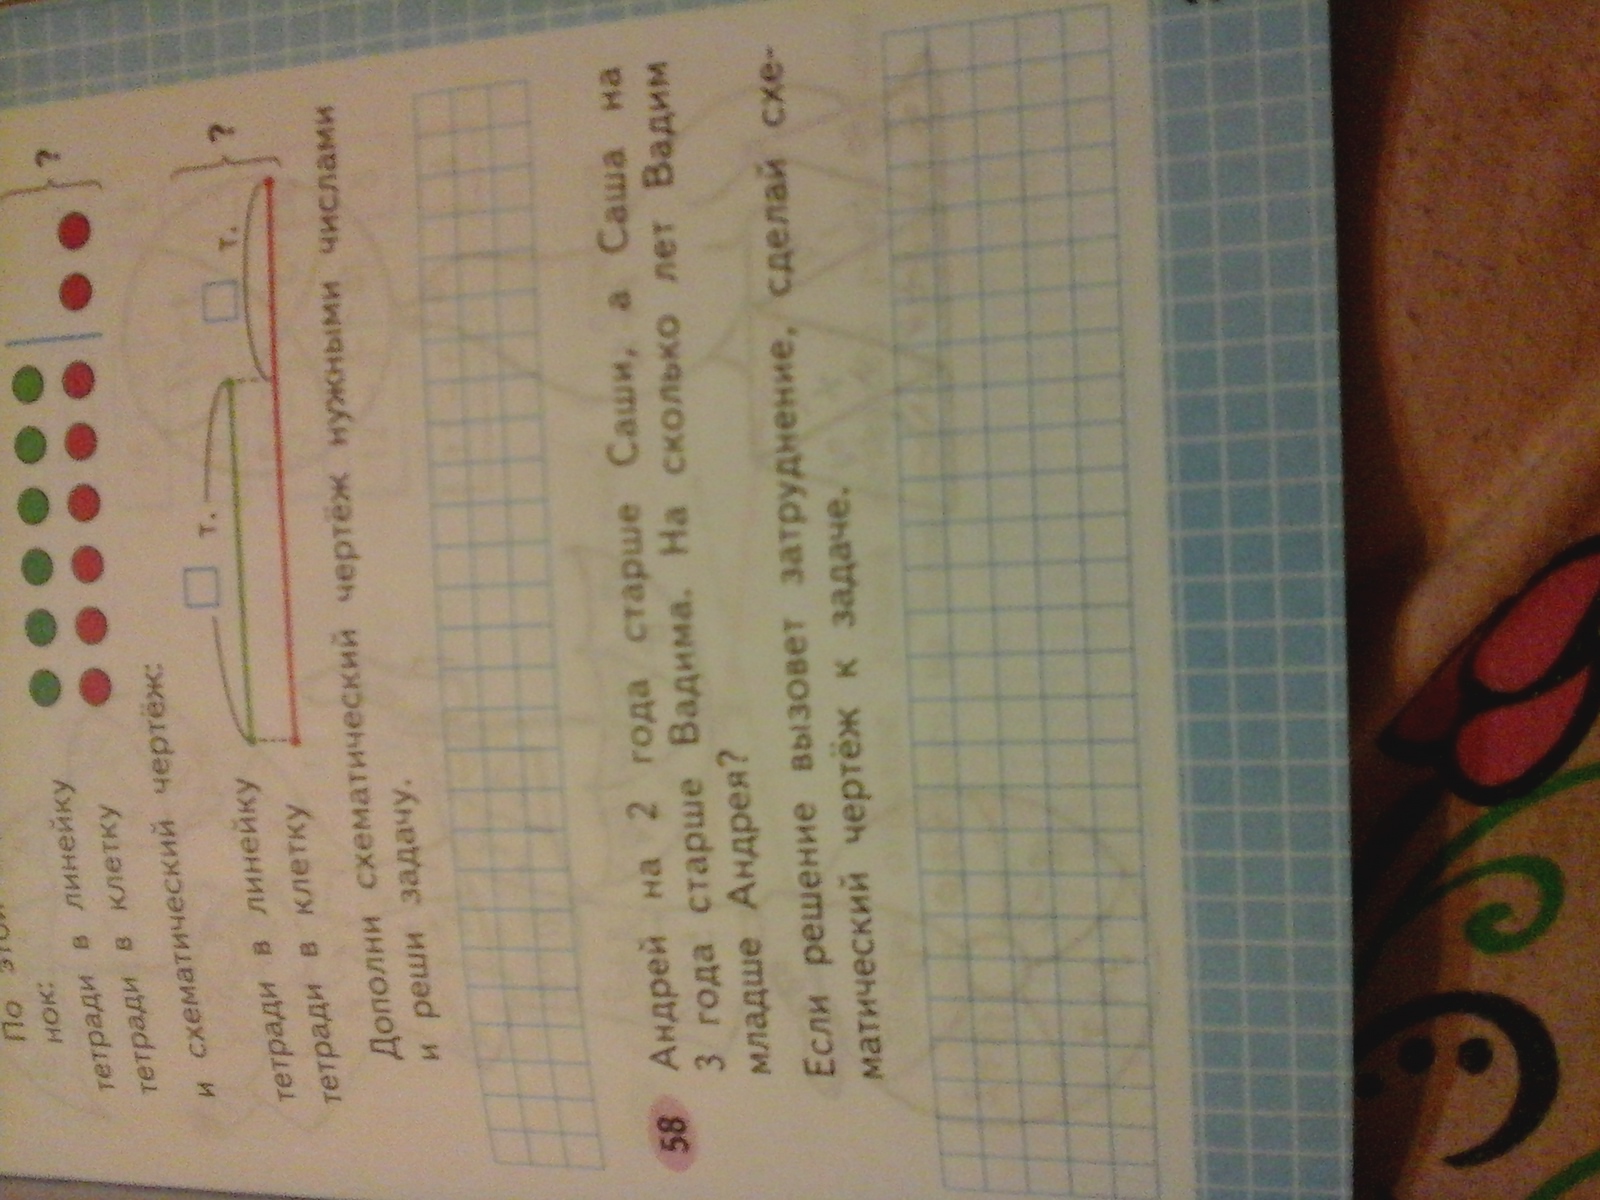 По этой
нок:
тетради в линейку
тетради в клетку
?
и схематический чертёж:
т.
т.
тетради в линейку
тетради в клетку
?
Дополни схематический чертёж нужными числами
и реши задачу.
58 Андрей на 2 года старше Саши, а Саша на
3 года старше Вадима. На сколько лет Вадим
младше Андрея?
Если решение вызовет затруднение, сделай схе-
матический чертёж к задаче.